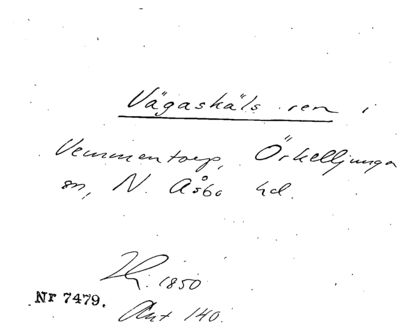 Vägaskäls ren i
Vemmentorp, Örkelljunga
sn, N. Åsbo hd.
1850
Nr 7479.
Ant 140.